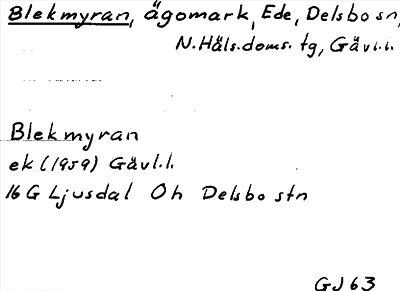 Blekmyran, ägomark, Ede, Delsbo sn,
N.Häls.doms. tg, Gävl.l.
Blekmyran
ek (1959) Gävl.l.
16 G Ljusdal Oh Delsbo stn
GJ 63